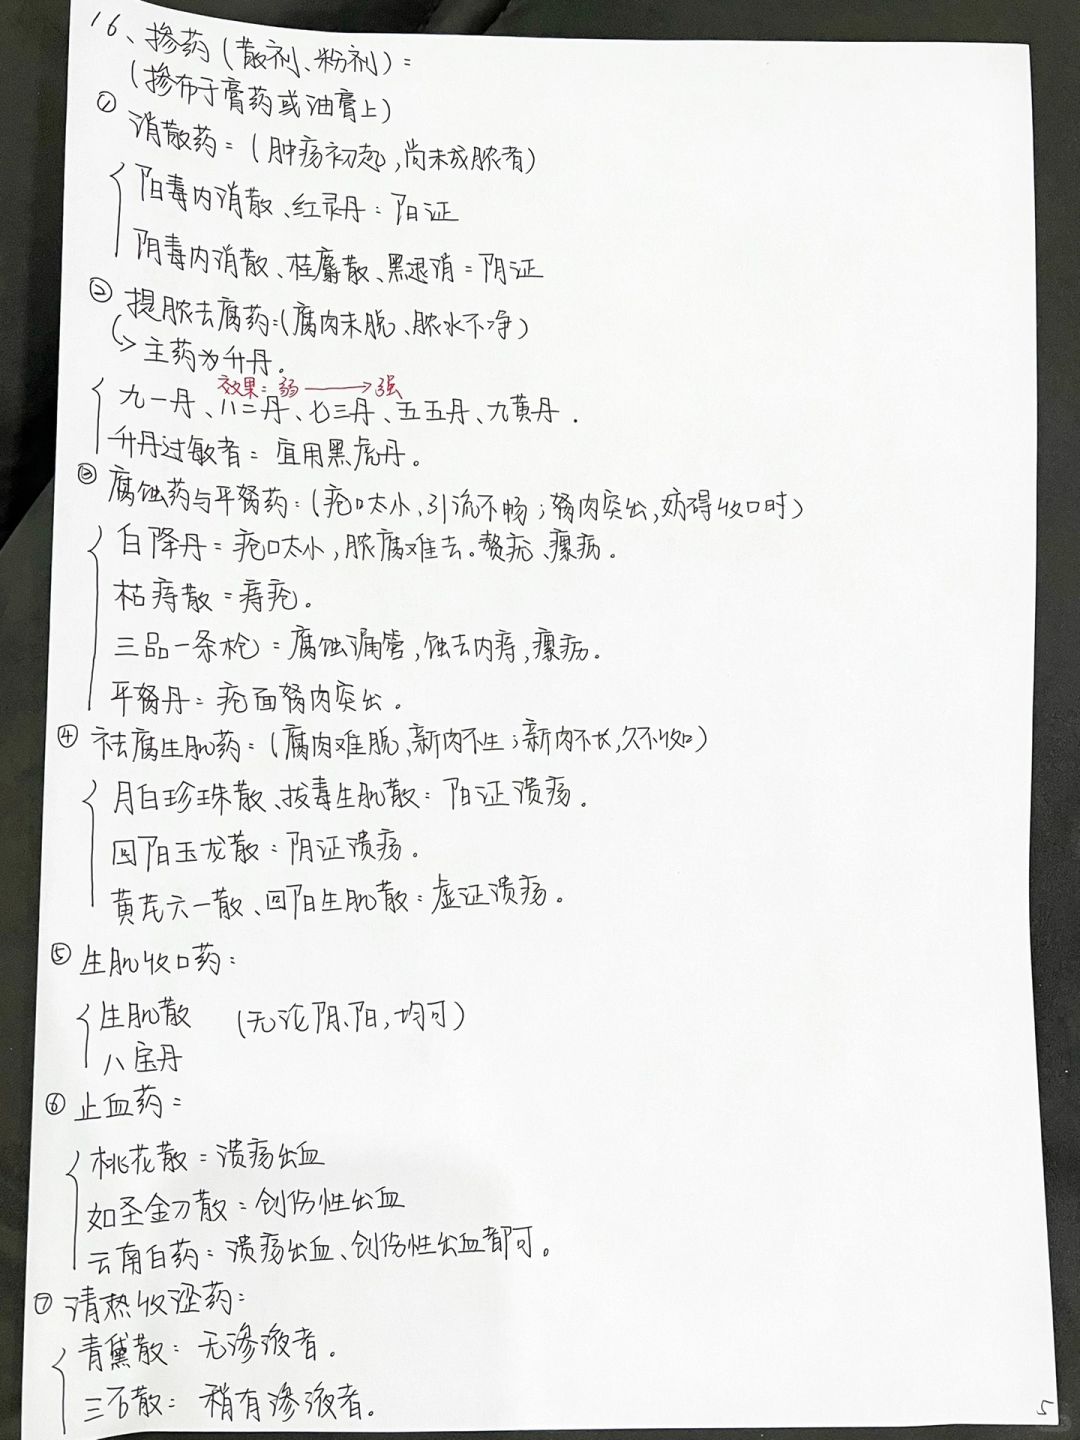 16、掺药（散剂、粉剂）：
（掺布于膏药或油膏上）
① 消散药：（肿疡初起，尚未成脓者）
阳毒内消散、红灵丹：阳证
阴毒内消散、桂麝散、黑退消：阴证
② 提脓去腐药：（腐肉未脱、脓水不净）
主药为升丹。
效果：弱→强
九一丹、八二丹、七三丹、五五丹、九黄丹．
升丹过敏者：宜用黑虎丹。
③ 腐蚀药与平胬药：（疮口太小、引流不畅；胬肉突出，妨碍收口时）
白降丹：疮口太小，脓腐难去。赘疣、瘰疬．
枯痔散：痔疮。
三品一条枪：腐蚀漏管，蚀去内痔，瘰疬．
平胬丹：疮面胬肉突出．
④ 祛腐生肌药：（腐肉难脱、新肉不生；新肉不长，久不收口）
月白珍珠散、拔毒生肌散：阳证溃疡．
回阳玉龙散：阴证溃疡．
黄芪六一散、回阳生肌散：虚证溃疡。
⑤ 生肌收口药：
生肌散 （无论阴、阳，均可）
八宝丹
⑥ 止血药：
桃花散：溃疡出血
如圣金刀散：创伤性出血
云南白药：溃疡出血、创伤性出血都可。
⑦ 清热收涩药：
青黛散：无渗液者．
三石散：稍有渗液者．
5